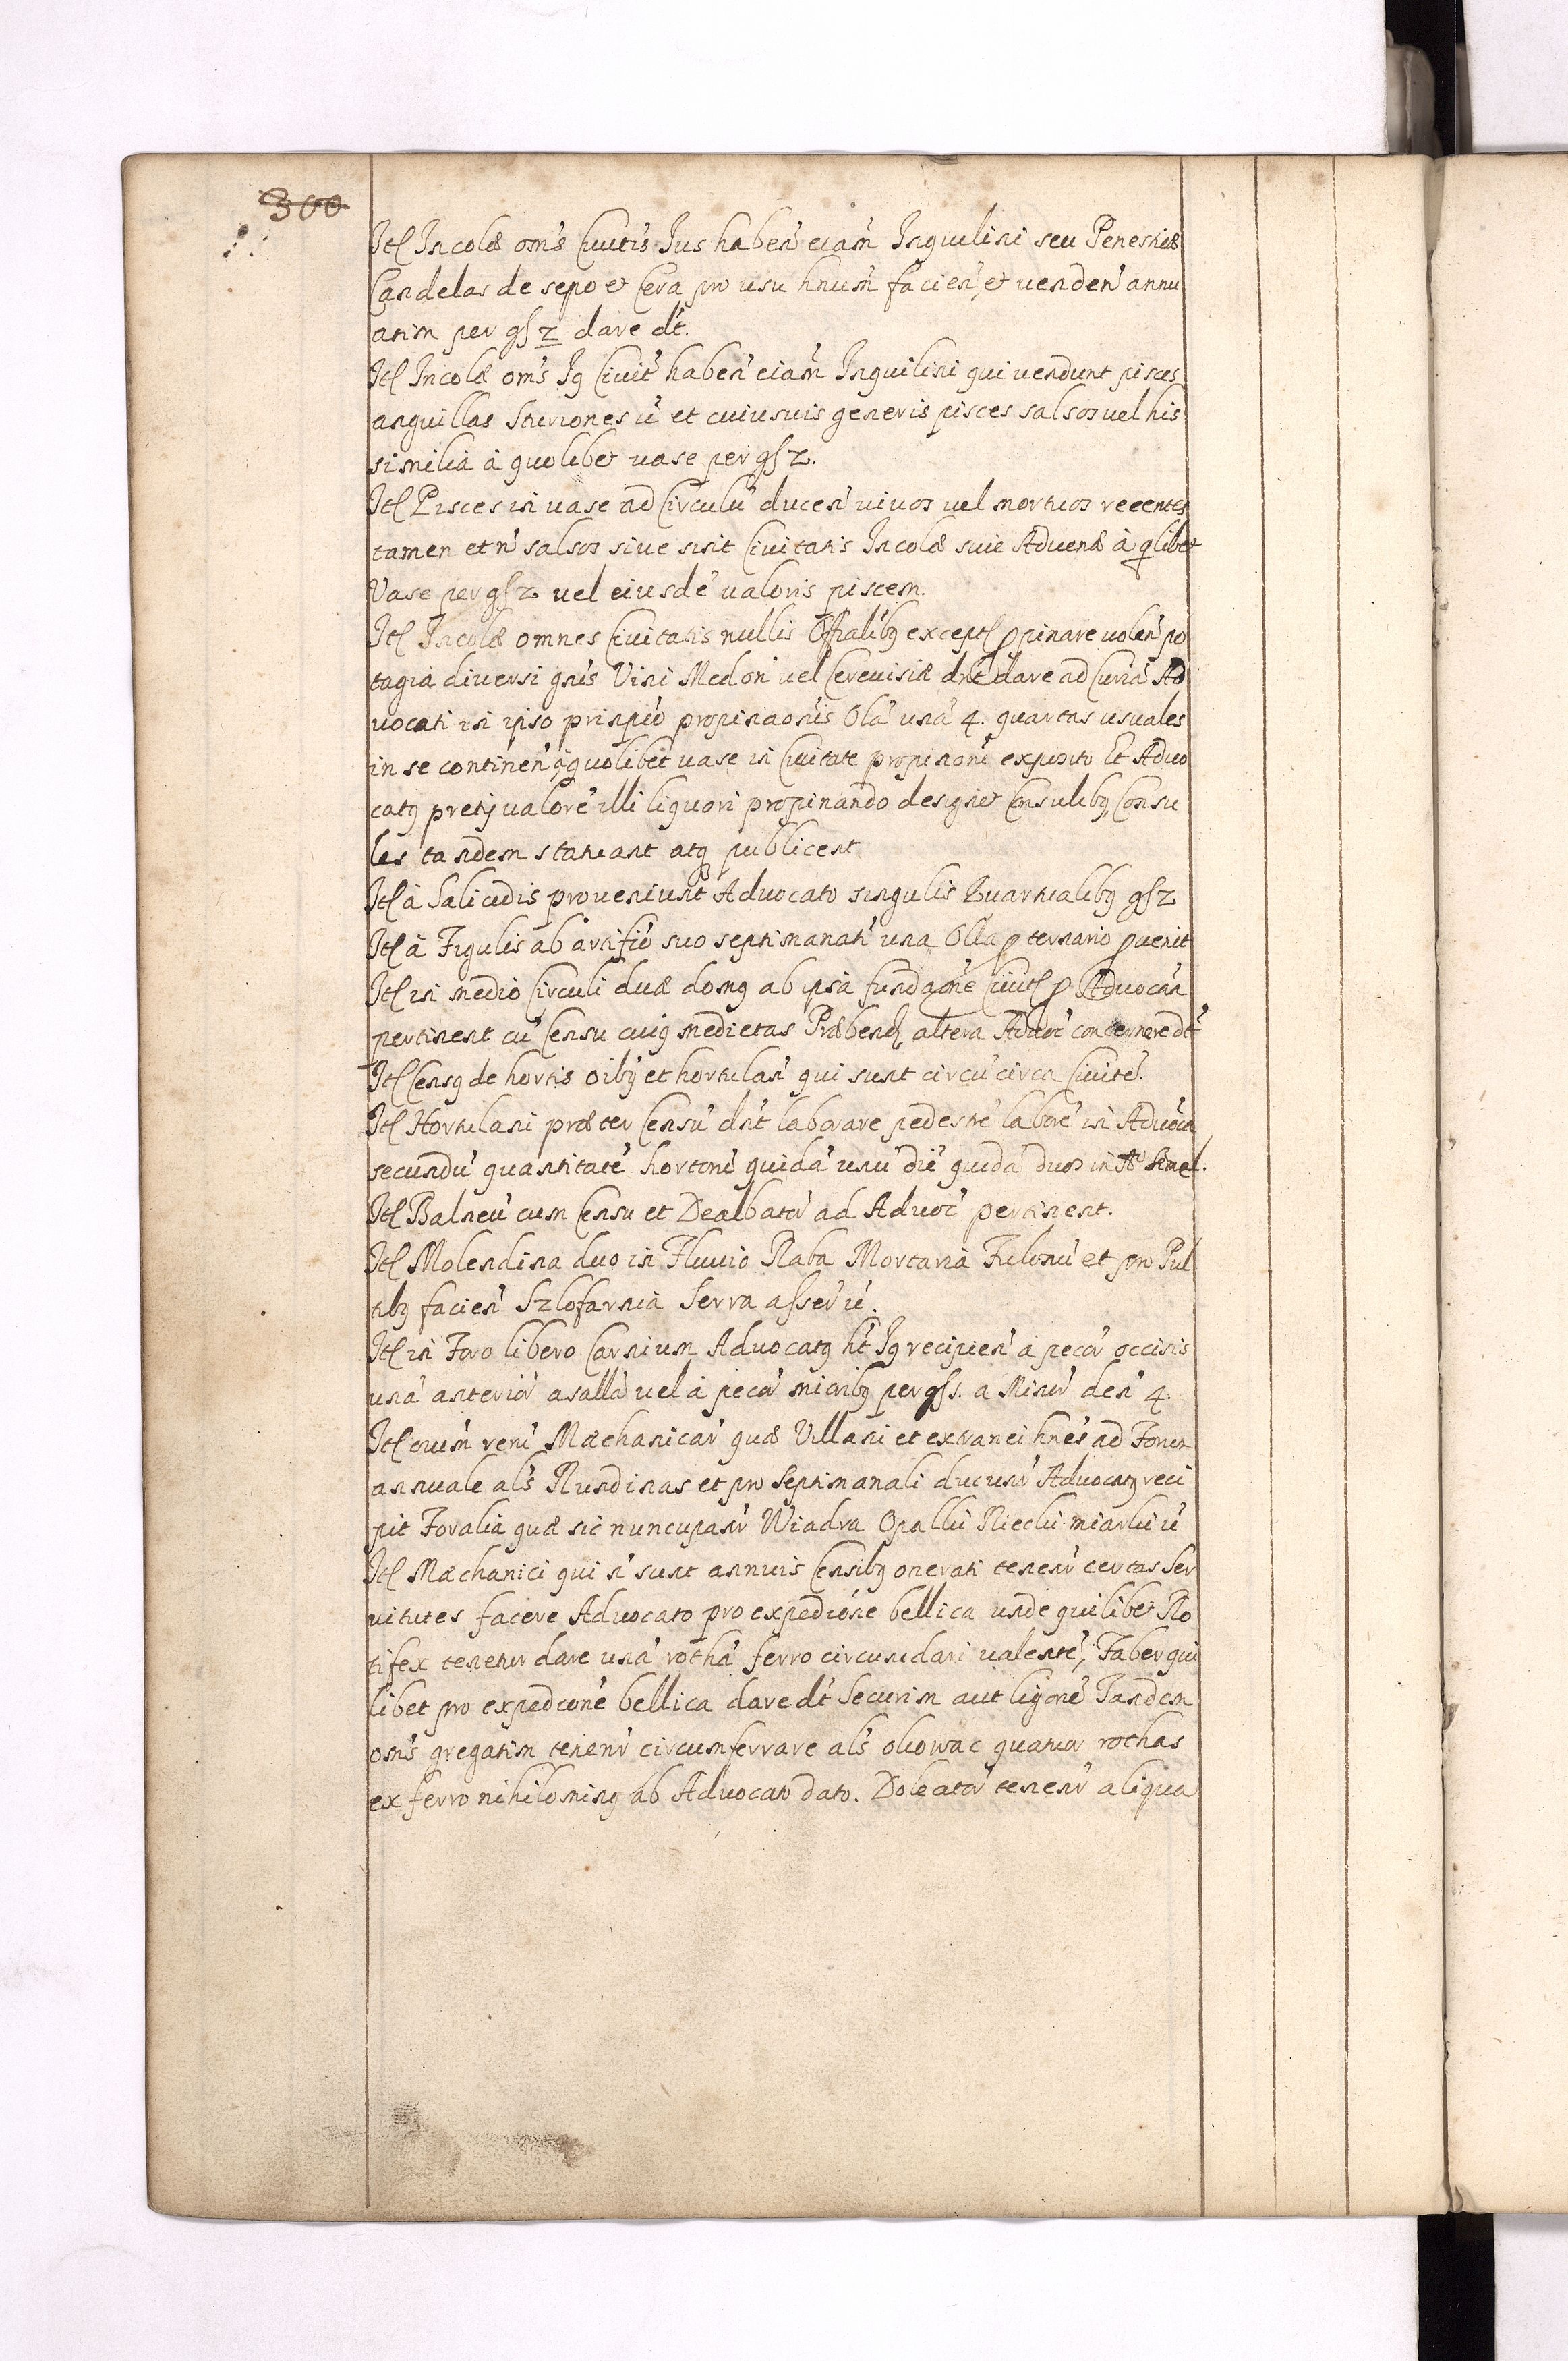 300
Itē Incolæ oms̄ Civitis̄ Ius haben̄ etiam̄ Inquilini seu Penestiæ
Candelas de sepo et Cera pro usu hnum̄ facien̄, et venden̄ annu
atim per gſ 2 dare dt̄.
Itē Incolæ oms̄ Ig Civit̄ haben̄ etiam̄ Inquilini qui vendunt pisces
anguillas Sturiones ū et cuiusvis generis pisces salsos vel his
similia à quolibet vase per gſ 2.
Itē Pisces in vase ad Circulū ducen̄ vivos vel mortuos recentes
tamen et n̄ salsos sive sint Civitatis Incolæ sive Advenæ à qlibet
Vase per gſ 2 vel eiusdē valoris piscem.
Itē Incolæ omnes Civitatis nullis Offialibꝰ exceptꝭ ꝓpinare volen̄ po
tagia diversi gn̄is Vini Medon̄ vel Cerevisiæ dn̄t dare ad Curiā Ad
vocati in ipso prinpio propinaōnis Olā unā 4. quartas usuales
in se continen̄ à quolibet vase in Civitate propinōni exposito Et Advo
catꝰ pretij valorē illi liquori propinando designet Consulibꝰ, Consu
les tandem statuant atq publicent
Itē à Salicidis proveniunt Advocato singulis Quartualibꝰ gſ 2
Itē à Figulis ab artifio suo septimanatī una Olla ꝓ ternario ꝓvenit
Itē in medio Circuli duæ domꝰ ab ipsa fundaōne Civitꝭ ꝓ Advocān
pertinent cū Censu cuiꝰ medietas Præbendꝭ altera Advoc̄ concernere dt̄
Itē Censꝰ de hortis oībꝰ et hortulan̄ qui sunt circū circa Civitē.
Itē Hortulani præter Censū dn̄t laborare pedestrē laborē in Advōcia
secundū quantitatē hortorū quidā unū diē quidā duos in Aō Semel.
Itē Balneū cum Censu et Dealbator̄ ad Advoc̄ pertinent.
Itē Molendina duo in Fluvio Raba Mortaria Fulonū et pro Pul
tibꝰ facien̄ Szlofarnia Serra asserū.
Itē in Foro libero Carnium Advocatꝰ ht̄ Ig recipien̄ à pecor̄ occisis
unā anterior̄ asallā vel à pecor̄ miōribꝰ per gſ 1. a Minor̄ den̄ 4.
Itē omnm̄ rerū Mæchanicar̄ quæ Villani et extranei hnēs ad Forum
annuale als̄ Nundinas et pro Septimanali ducunt̄ Advocatꝰ reci
pit Foralia quæ sic nuncupant̄ Wiadra Opałki Niecki miarki ū
Itē Mæchanici qui n̄ sunt annuis Censibꝰ onerati tenent̄ certas Ser
vitutes facere Advocato pro expediōne bellica unde quilibet Ro
tifex tenetur dare unā rothā ferro circumdari valentē, Faber qui
libet pro expediōne bellica dare dt̄ Securim aut ligonē Tandem
oms̄ gregatim tenent̄ circumferrare als̄ okowac quatuor rothas
ex ferro nihilominꝰ ab Advocato dato. Doleator̄ tenent̄ aliqua